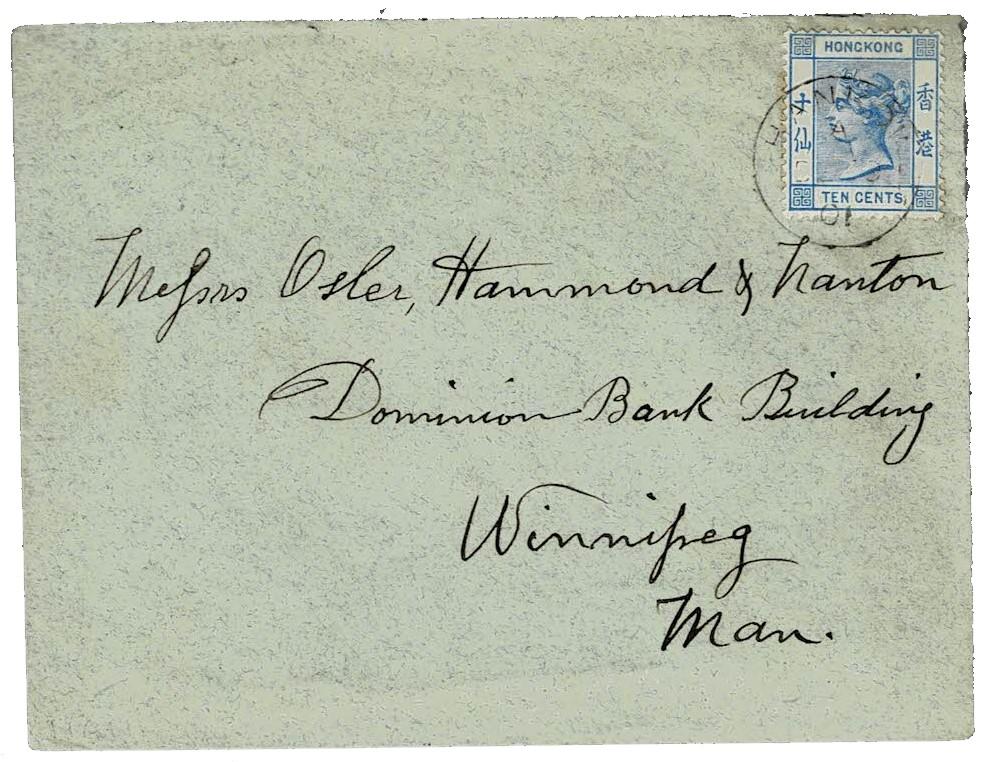 HONGKONG
十仙
香港
TEN CENTS
HANKOW
01
Messrs Osler, Hammond & Nanton
Dominion Bank Building
Winnipeg
Man.